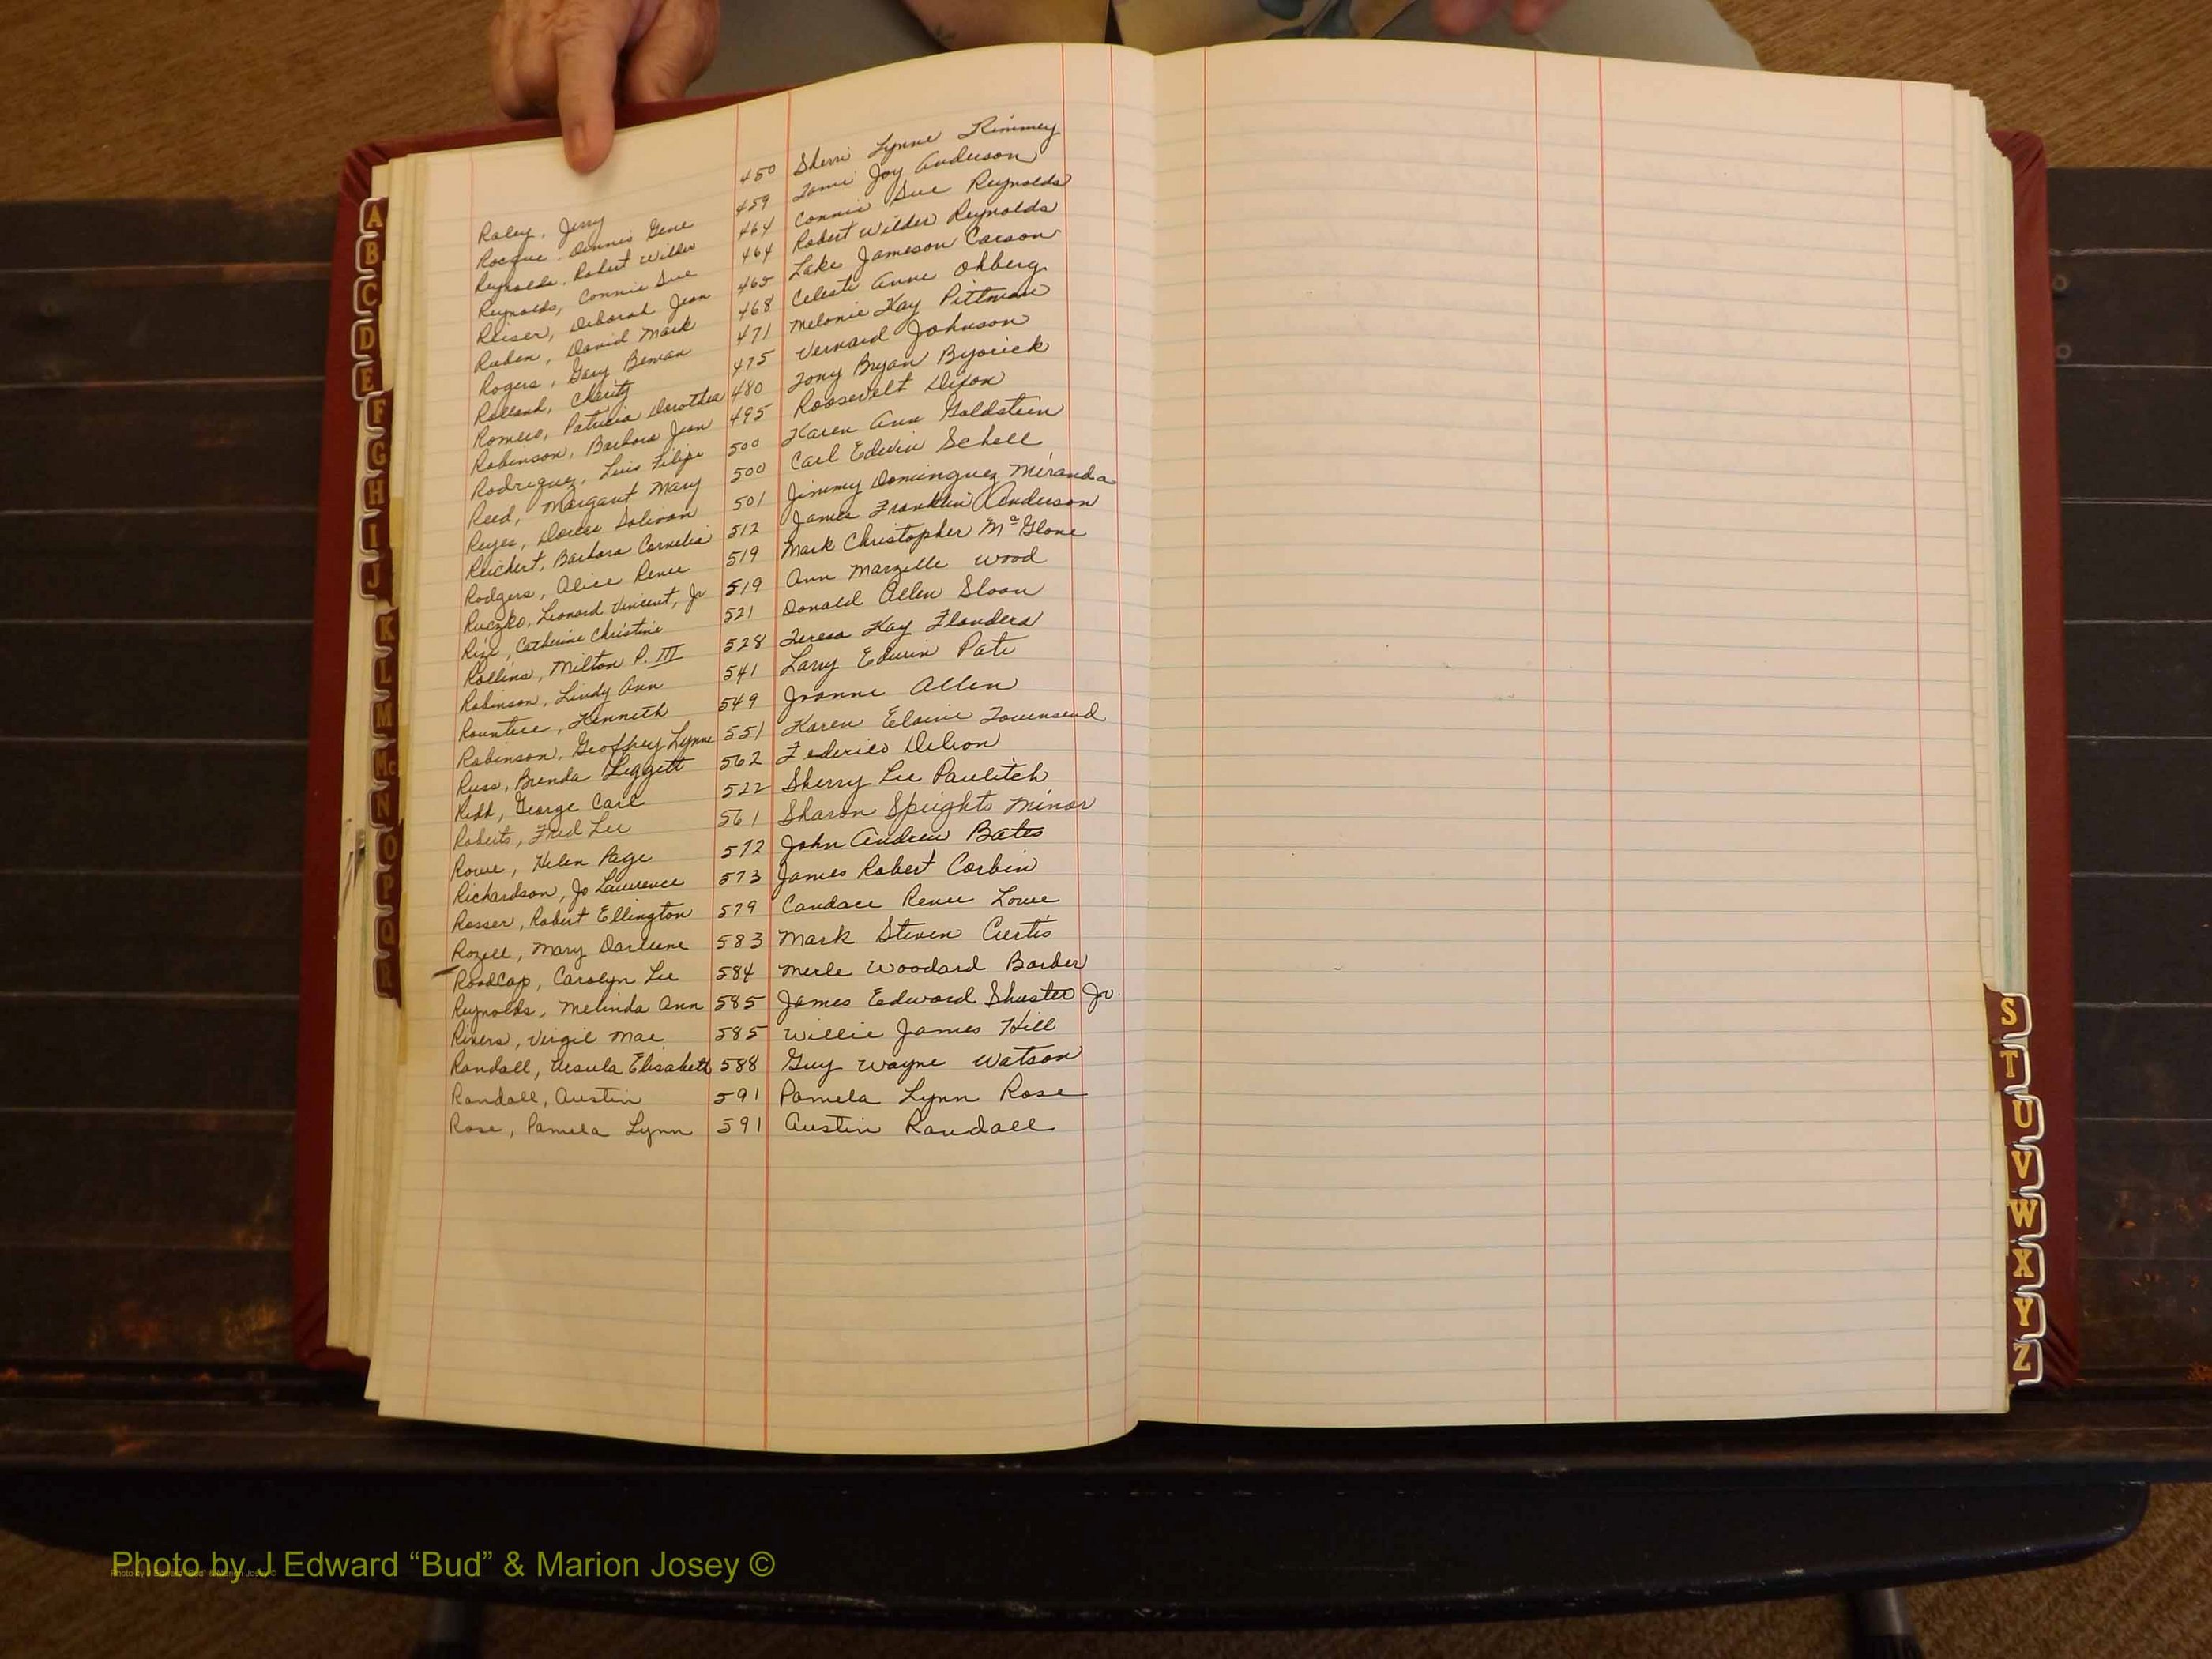 Raley, Jerry 450 Sherri Lynne Rimmey
Rocque, Dennis Gene 459 Tami Joy Anderson
Reynolds, Robert Wilder 464 Connie Sue Reynolds
Reynolds, Connie Sue 464 Robert Wilder Reynolds
Reiser, Deborah Jean 465 Lake Jameson Carson
Ruben, David Mark 468 Celeste Anne Ohberg
Rogers, Gary Beman 471 Melonie Kay Pittman
Rolland, Charity 475 Vernard Johnson
Romero, Patricia Dorothea 480 Tony Bryan Byorick
Robinson, Barbara Jean 495 Roosevelt Dixon
Rodriguez, Luis Filipe 500 Karen Ann Goldstein
Reed, Margaret Mary 500 Carl Edwin Schell
Reyes, Dorcas 501 Jimmy Dominguez Miranda
Reichert, Barbara Cornelia 512 James Franklin Anderson
Rodgers, Alice Renee 519 Mark Christopher McGlone
Ruczko, Leonard Vincent, Jr 519 Ann Marzelle Wood
Catherine Christine 521 Donald Allen Sloan
Rollins, Milton P. III 528 Teresa Kay Flanders
Robinson, Lindy Ann 541 Larry Edwin Pate
Rountree, Kenneth 549 Joanne Allen
Robinson, Geoffrey Lynne 551 Karen Elaine Townsend
Russ, Brenda Liggett 562 Federico
George Carl 522 Sherry Lee Paulitch
Roberts, Fred Lee 561 Sharon Speights Minor
Rowe, Helen Page 572 John Andrew Bates
Richardson, Jo Lawrence 573 James Robert Corbin
Rosser, Robert Ellington 579 Candace Renee Lowe
Rozell, Mary Darleene 583 Mark Steven Curtis
RoodCap, Carolyn Lee 584 Merle Woodard Barber
Reynolds, Melinda Ann 585 James Edward Shuster Jr.
Rivers, Virgil Mae 585 Willie James Hill
Randall, Ursula Elisabeth 588 Guy Wayne Watson
Randall, Austin 591 Pamela Lynn Rose
Rose, Pamela Lynn 591 Austin Randall
A
B
C
D
E
F
G
H
I
J
K
L
M
Mc
N
O
P
Q
R
S
T
U
V
W
X
Y
Z
Photo by J Edward “Bud” & Marion Josey ©
Photo by J Edward "Bud" & Marion Josey ©